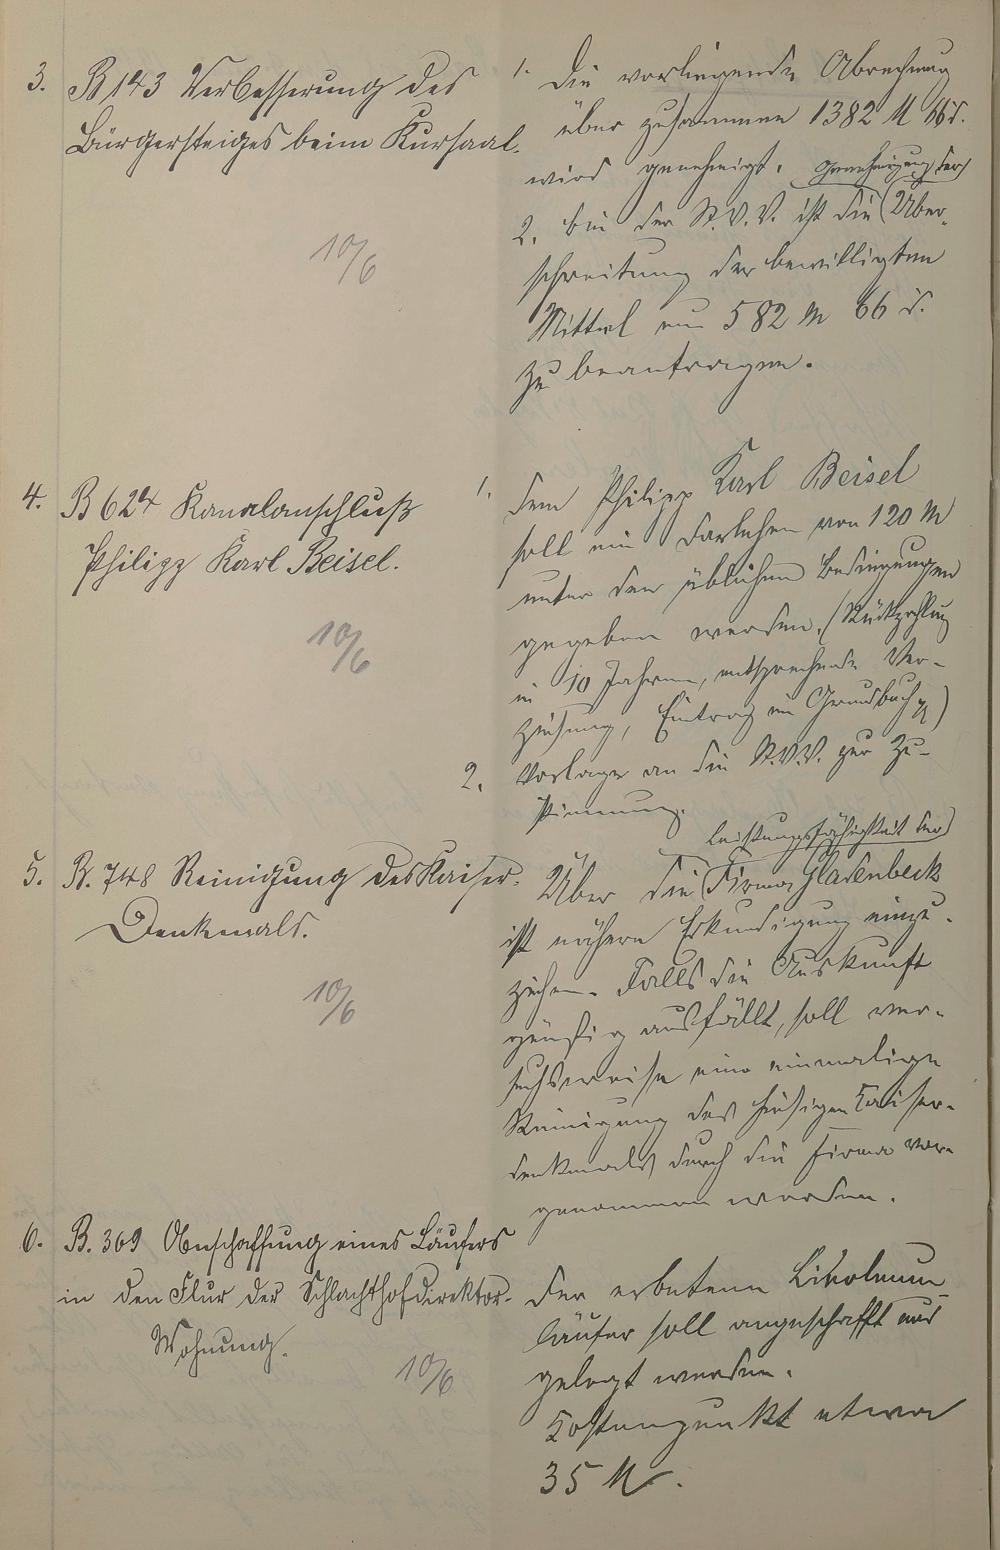 3. B 143 Verbesserung des
Bürgersteiges beim Kursaal.
10/6
1. Die vorliegende Abrechnung
über zusammen 1382 M 66 d.
wird genehmigt.
2. bei der St. V. V. ist die (Genehmigung der) Über-
schreitung der bewilligten
Mittel um 582 M 66 d.
zu beantragen.
4. B 624 Kanalanschluß
Philipp Karl Beisel.
10/6
1. Dem Philipp Karl Beisel
soll ein Darlehen von 120 M
unter den üblichen Bedingungen
gegeben werden. (Rückzahlung
in 10 Jahren, entsprechende Ver-
zinsung, Eintrag im Grundbuch pp)
2. Vorlage an die St.V.V. zur Zu-
stimmung.
5. B. 748 Reinigung des Kaiser-
Denkmals.
10/6
Über die (Leistungsfähigkeit der) Firma Gladenbeck
ist nähere Erkundigung einzu-
ziehen. Falls die Auskunft
günstig ausfällt, soll ver-
suchsweise eine einmalige
Reinigung des hiesigen Kaiser-
denkmals durch die Firma vor-
genommen werden.
6. B. 369 Anschaffung eines Läufers
in den Flur der Schlachthofdirektor-
Wohnung.
10/6
Der erbetene Linoleum-
läufer soll angeschafft und
gelegt werden.
Kostenpunkt etwa
35 M.